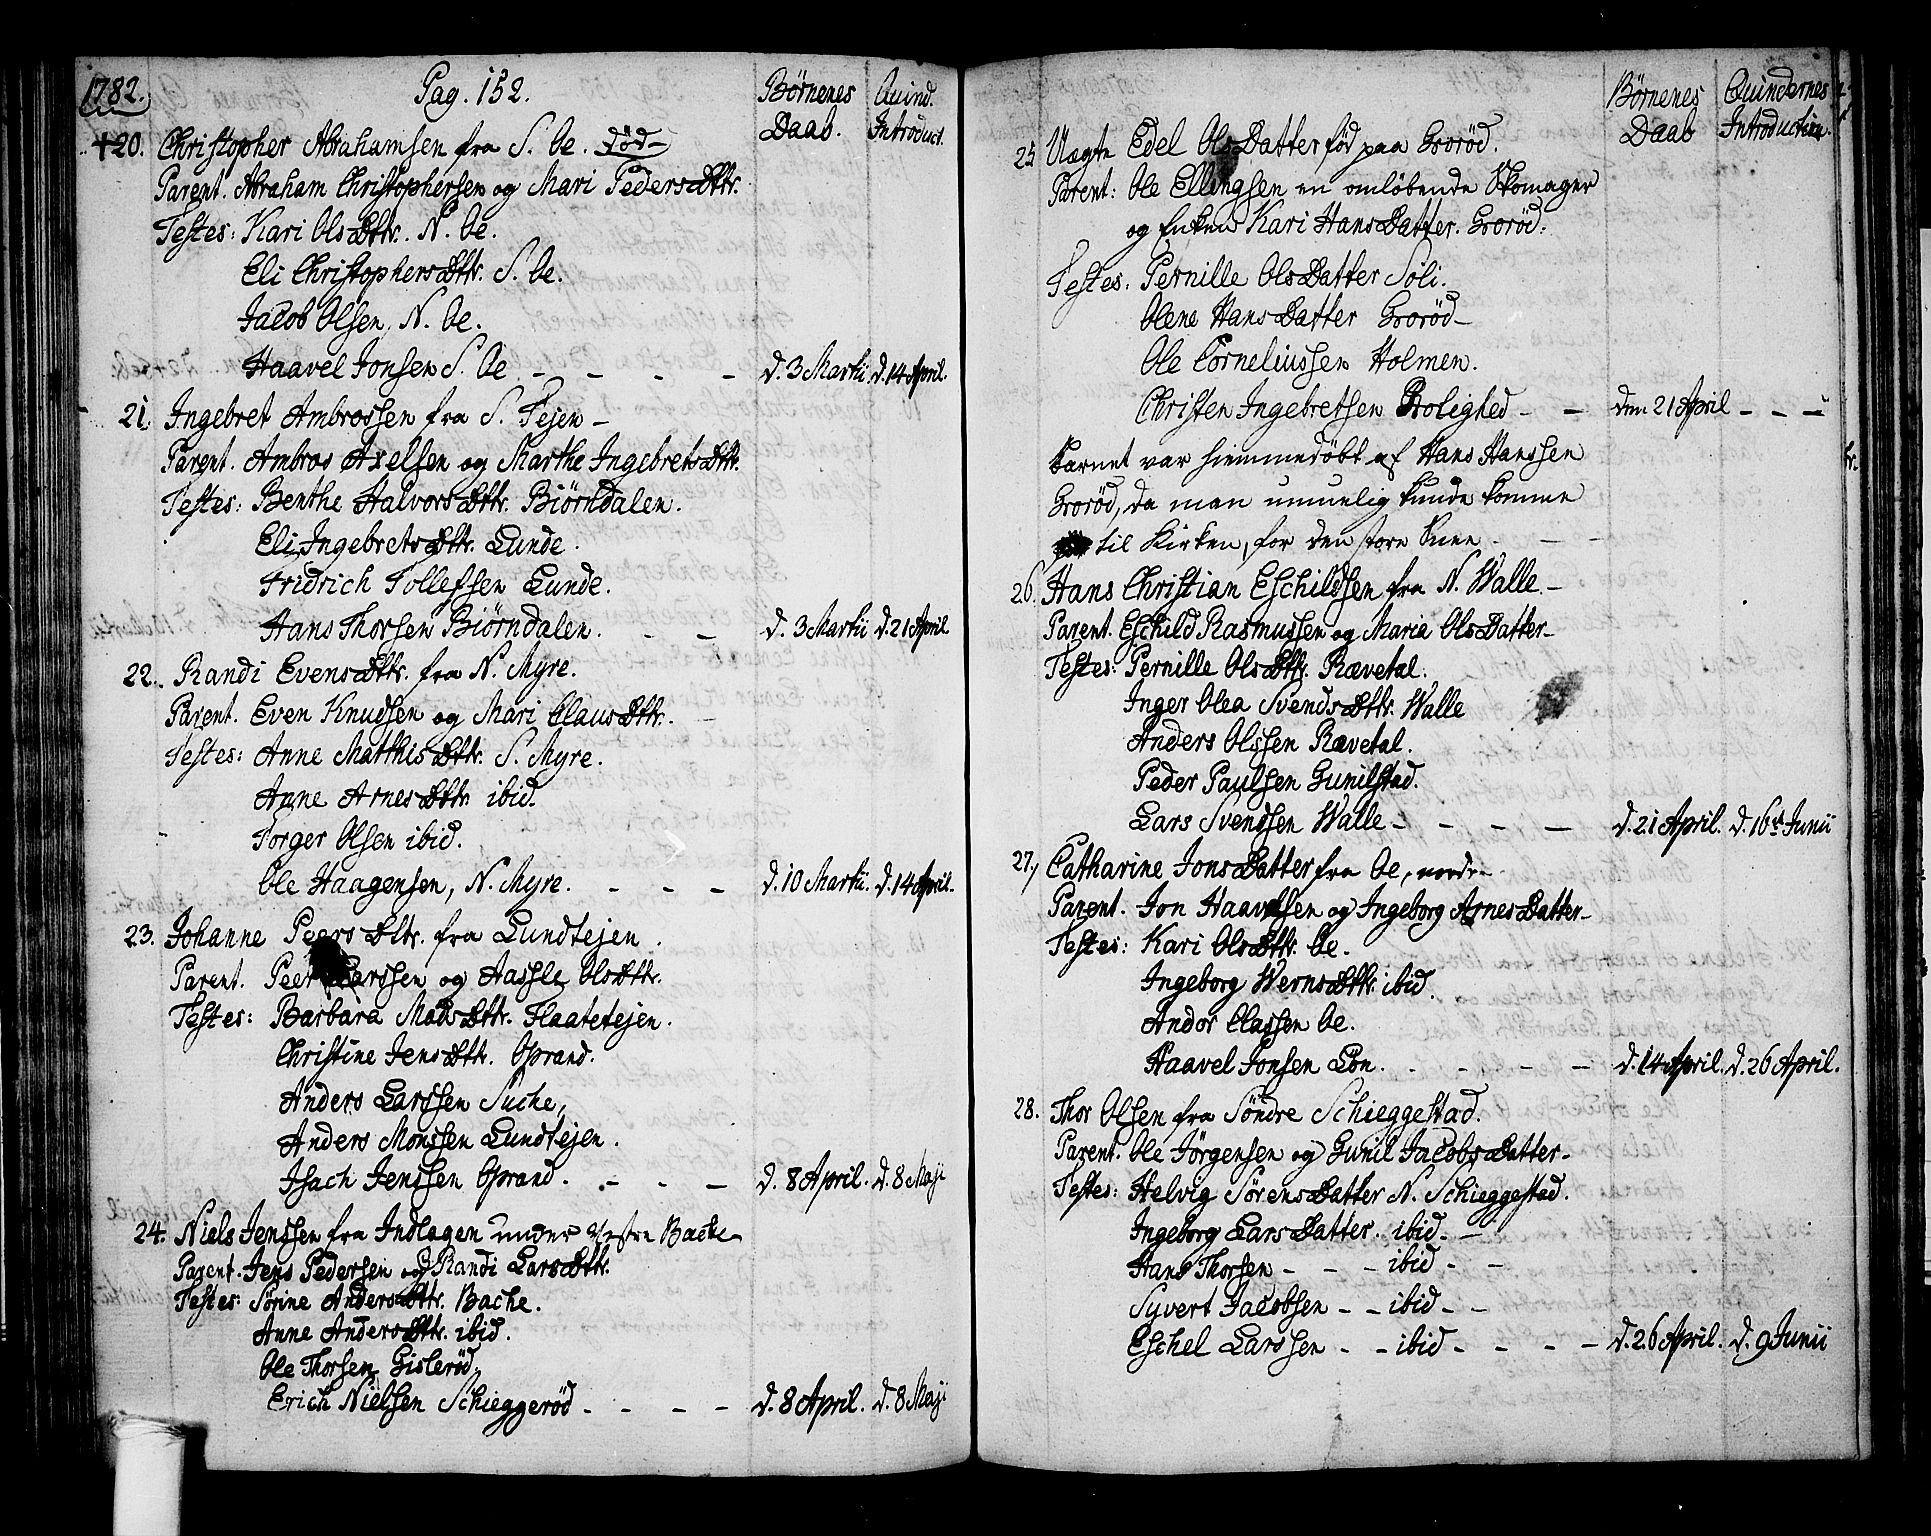 1782.
Pag. 152.
Børnenes Daab.
Quind. Introduct.
+20. Christopher Abrahamsen fra S. Oe. død
Parent. Abraham Christophersen og Mari PedersDttr.
Testes: Kari OlsDttr. N. Oe.
Eli ChristophersDttr. S. Oe.
Jacob Olsen, N. Oe.
Haavel Jonsen S. Oe - - - - d. 3 Martii. d. 14 April.
21. Ingebret Ambrossen fra S. Tejen -
Parent. Ambros Axelsen og Marthe IngebretsDttr.
Testes: Benthe HalvorsDttr. Biörndalen.
Eli IngebretsDttr. Lunde.
Fridrich Tollefsen Lunde.
Hans Thorsen Biörndalen. - - d. 3 Martii d. 21 April
22. Randi EvensDttr. fra N. Myre.
Parent. Even Knudsen og Mari ClausDttr. -
Testes: Anne MatthisDttr. S. Myre.
Anne ArnesDttr ibid.
Torger Olsen ibid.
Ole Haagensen, N. Myre. - - - d. 10 Martii. d. 14 April.
23. Johanne PeersDttr. fra Lundtejen.
Parent. Peer Larssen og Aassle OlsDttr.
Testes: Barbara MadsDttr. Flaatetejen.
Christine JensDttr. Oprand.
Anders Larssen Suche,
Anders Monssen Lundtejen.
Isach Jenssen Oprand. - - - d. 8 April. d. 8 Maji
24. Niels Jenssen fra Indlagen under Vestre Bache
Parent. Jens Pedersen og Randi LarsDttr.
Testes: Sørine AndersDttr. Bache.
Anne AndersDttr. ibid.
Ole Thorsen Gislerød,
Erich Nielsen Schieggerød - - - - d. 8 April. d. 8 Maji
Børnenes Daab
Quindernes Introduction.
25 Uægte Edel OlsDatter fød paa Grorød.
Parent: Ole Ellingsen en omløbende Skomager
og Enken Kari HansDatter. Grorød.
Testes: Pernille OlsDatter Soli.
Olene HansDatter Grorød -
Ole Corneliussen Holmen.
Christen Ingebretsen Rolighed - - den 21 April - - -
Barnet var hiemmedøbt af Hans Hanssen
Grorød, da man umuelig kunde komme
til Kirken, for den store Snee - -
26. Hans Christian Eschildsen fra N. Walle -
Parent. Eschild Rasmussen og Maria OlsDatter -
Testes: Pernille OlsDttr. Rævetal.
Inger Olea SvendsDttr. Walle
Anders Olssen Rævetal.
Peder Paulsen Gunilstad.
Lars Svendsen Walle - - - - d. 21 April. d. 16de Junii
27, Catharine JonsDatter fra Oe, nordr -
Parent. Jon Haavelsen og Ingeborg ArnesDatter -
Testes: Kari OlsDttr. Oe.
Ingeborg WernsDttr. ibid.
Andor Classen Oe.
Haavel Jonsen Lon. - - - - d. 14 April. d. 26 April.
28. Thor Olsen fra Söndre Schieggestad.
Parent. Ole Jörgensen og Gunil JacobsDatter -
Testes: Helvig SørensDatter N. Schieggestad.
Ingeborg LarsDatter. ibid. -
Hans Thorsen - - - ibid - -
Syvert Jacobsen - - ibid - -
Eschel Larssen - - ibid - - - - d. 26 April. d. 9 Junii